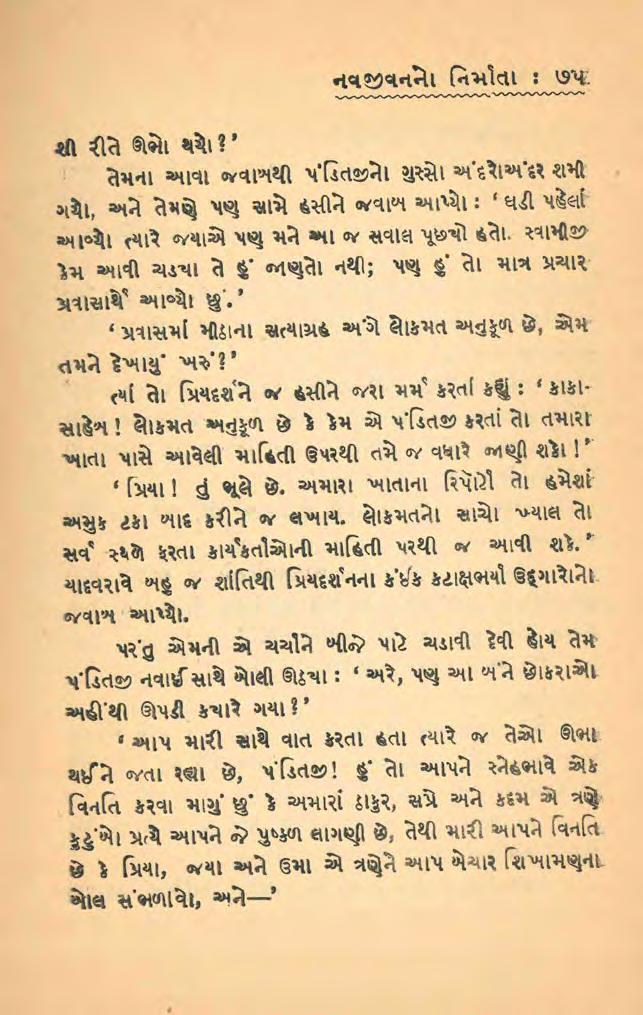 નવજીવનનો નિર્માતા : ૭૫
શી રીતે ઊભો થયો?’
તેમના આવા જવાબથી પંડિતજીનો ગુસ્સો અંદરોઅંદર શમી
ગયો, અને તેમણે પણ સામે હસીને જવાબ આપ્યો : ‘ઘડી પહેલાં
આવ્યો ત્યારે જયાએ પણ મને આ જ સવાલ પૂછ્યો હતો. સ્વામીજી
કેમ આવી ચડ્યા તે હું જાણતો નથી; પણ હું તો માત્ર પ્રચાર
પ્રવાસાર્થે આવ્યો છું.’
‘પ્રવાસમાં મીઠાના સત્યાગ્રહ અંગે લોકમત અનુકૂળ છે, એમ
તમને દેખાયું ખરું?’
ત્યાં તો પ્રિયદર્શને જ હસીને જરા મર્મ કરતાં કહ્યું : ‘કાકા-
સાહેબ! લોકમત અનુકૂળ છે કે કેમ એ પંડિતજી કરતાં તો તમારા
ખાતા પાસે આવેલી માહિતી ઉપરથી તમે જ વધારે જાણી શકો!’
‘પ્રિયા! તું ભૂલે છે. અમારા ખાતાના રિપૉર્ટો તો હમેશાં
અમુક ટકા બાદ કરીને જ લખાય. લોકમતનો સાચો ખ્યાલ તો
સર્વ સ્થળે ફરતા કાર્યકર્તાઓની માહિતી પરથી જ આવી શકે.’
યાદવરાવે બહુ જ શાંતિથી પ્રિયદર્શનના કંઈક કટાક્ષભર્યા ઉદ્ગારોનો
જવાબ આપ્યો.
પરંતુ એમની એ ચર્ચાને બીજે પાટે ચડાવી દેવી હોય તેમ
પંડિતજી નવાઈ સાથે બોલી ઊઠ્યા : ‘અરે, પણ આ બંને છોકરાઓ
અહીંથી ઊપડી ક્યારે ગયા?’
‘આપ મારી સાથે વાત કરતા હતા ત્યારે જ તેઓ ઊભા
થઈને જતા રહ્યા છે, પંડિતજી! હું તો આપને સ્નેહભાવે એક
વિનતિ કરવા માગું છું કે અમારાં ઠાકુર, સપ્રે અને કદમ એ ત્રણે
કુટુંબો પ્રત્યે આપને જે પુષ્કળ લાગણી છે, તેથી મારી આપને વિનતિ
છે કે પ્રિયા, જયા અને ઉમા એ ત્રણેને આપ બેચાર શિખામણના
બોલ સંભળાવો, અને—’